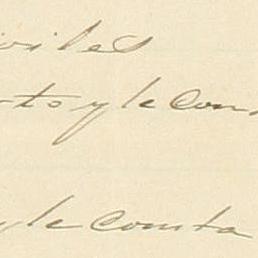 iviles
rto y le cons
y le consta